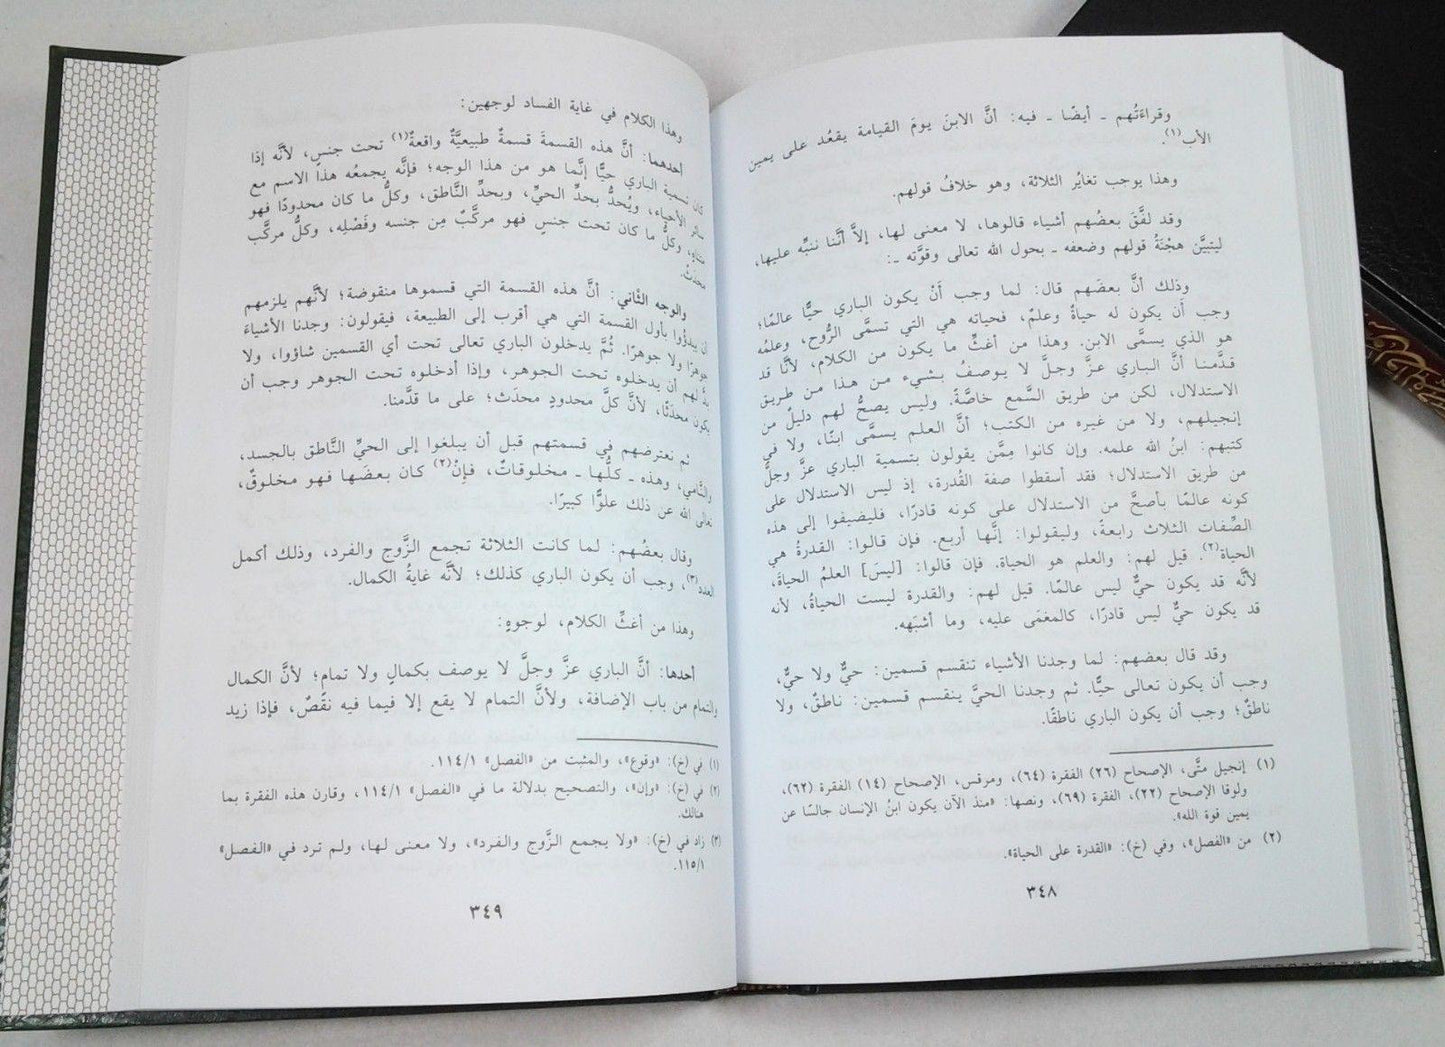 وقراءَتُهم ـ أيضًا ـ فيه: أنَّ الابنَ يومَ القيامة يقعُد على يمين
الأب(١).
وهذا يوجب تغايُر الثلاثة، وهو خلافُ قولهم.
وقد لفَّقَ بعضُهم أشياء قالوها، لا معنى لها، إلاَّ أنَّنا ننبِّه عليها،
ليتبيَّن هجْنَةُ قولهم وضعفه ـ بحول الله تعالى وقوَّته ـ:
وذلك أنَّ بعضَهم قال: لما وجب أنْ يكون الباري حيًّا عالمًا؛
وجب أن يكون له حياةٌ وعلمٌ، فحياته هي التي تسمَّى الرُّوح، وعلمُه
هو الذي يسمَّى الابن. وهذا من أغثِّ ما يكون من الكلام، لأنَّا قد
قدَّمنا أنَّ الباري عزَّ وجلَّ لا يوصفُ بشيء من هذا من طريق
الاستدلال، لكن من طريق السَّمع خاصَّةً. وليس يصحُّ لهم دليلٌ من
إنجيلهم، ولا من غيره من الكتب؛ أنَّ العلم يسمَّى ابنًا، ولا في
كتبهم: ابنُ الله علمه. وإن كانوا ممَّن يقولون بتسمية الباري عزَّ وجلَّ
من طريق الاستدلال؛ فقد أسقطوا صفة القُدرة، إذ ليس الاستدلال على
كونه عالمًا بأصحَّ من الاستدلال على كونه قادرًا، فليضيفوا إلى هذه
الصِّفات الثلاث رابعةً، وليقولوا: إنَّها أربع. فإن قالوا: القدرةُ هي
الحياة(٢). قيل لهم: والعلم هو الحياة. فإن قالوا: [ليسَ] العلمُ الحياةَ،
لأنَّه قد يكون حيٌّ ليس عالمًا. قيل لهم: والقدرة ليست الحياةُ، لأنه
قد يكون حيٌّ ليس قادرًا، كالمغمَى عليه، وما أشبَهه.
وقد قال بعضهم: لما وجدنا الأشياء تنقسم قسمين: حيٌّ ولا حيٌّ،
وجب أن يكون تعالى حيًّا. ثم وجدنا الحيَّ ينقسم قسمين: ناطقٌ، ولا
ناطقٌ؛ وجب أن يكون الباري ناطقًا.
(١) إنجيل متَّى، الإصحاح (٢٦) الفقرة (٦٤)، ومرقس، الإصحاح (١٤) الفقرة (٦٢)،
ولوقا الإصحاح (٢٢)، الفقرة (٦٩)، ونصها: «منذ الآن يكون ابنُ الإنسان جالسًا عن
يمين قوة الله».
(٢) من «الفصل»، وفي (خ): «القدرة على الحياة».
٣٤٨
وهذا الكلام في غاية الفساد لوجهين:
أحدهما: أنَّ هذه القسمةَ قسمةٌ طبيعيَّةٌ واقعةٌ(١) تحت جنسٍ، لأنَّه إذَا
كان تسمية الباري حيًّا إنَّما هو من هذا الوجه؛ فإنَّه يجمعُه هذا الاسم مع
سائر الأحياء، ويُحدُّ بحدِّ الحيِّ، وبحدِّ النَّاطق، وكلُّ ما كان محدودًا فهو
متناهٍ، وكلُّ ما كان تحت جنسٍ فهو مركَّبٌ مِن جنسه وفَصْلِه، وكلُّ مركَّب
محدَثٌ.
والوجه الثَّاني: أنَّ هذه القسمة التي قسموها منقوضة؛ لأنَّهم يلزمهم
أن يبدؤُوا بأول القسمة التي هي أقرب إلى الطبيعة، فيقولون: وجدنا الأشياءَ
جوهرًا ولا جوهرًا. ثُمَّ يدخلون الباري تعالى تحت أي القسمين شاؤوا، ولا
بدَّ لهم أن يدخلوه تحت الجوهر، وإذا أدخلوه تحت الجوهر وجب أن
يكون محدَثًا، لأنَّ كلَّ محدودٍ محدَث؛ على ما قدَّمنا.
ثم نعترضهم في قسمتهم قبل أن يبلغوا إلى الحيِّ النَّاطق بالجسد،
والنَّامي، وهذه ـ كلُّها ـ مخلوقاتٌ، فإنْ(٢) كان بعضَها فهو مخلوقٌ،
تعالى الله عن ذلك علوًّا كبيرًا.
وقال بعضُهم: لما كانت الثلاثة تجمع الزَّوج والفرد، وذلك أكمل
العدد(٣)، وجب أن يكون الباري كذلك؛ لأنَّه غايةُ الكمال.
وهذا من أغثِّ الكلام، لوجوهٍ:
أحدها: أنَّ الباري عزَّ وجلَّ لا يوصف بكمالٍ ولا تمام؛ لأنَّ الكمال
والتمام من باب الإضافة، ولأنَّ التمام لا يقع إلا فيما فيه نقْصٌ، فإذا زيد
(١) في (خ): «وقوع»، والمثبت من «الفصل» ١١٤/١.
(٢) في (خ): «وإن»، والتصحيح بدلالة ما في «الفصل» ١١٤/١، وقارن هذه الفقرة بما
هنالك.
(٣) زاد في (خ): «ولا يجمع الزَّوج والفرد»، ولا معنى لها، ولم ترد في «الفصل»
١١٥/١.
٣٤٩